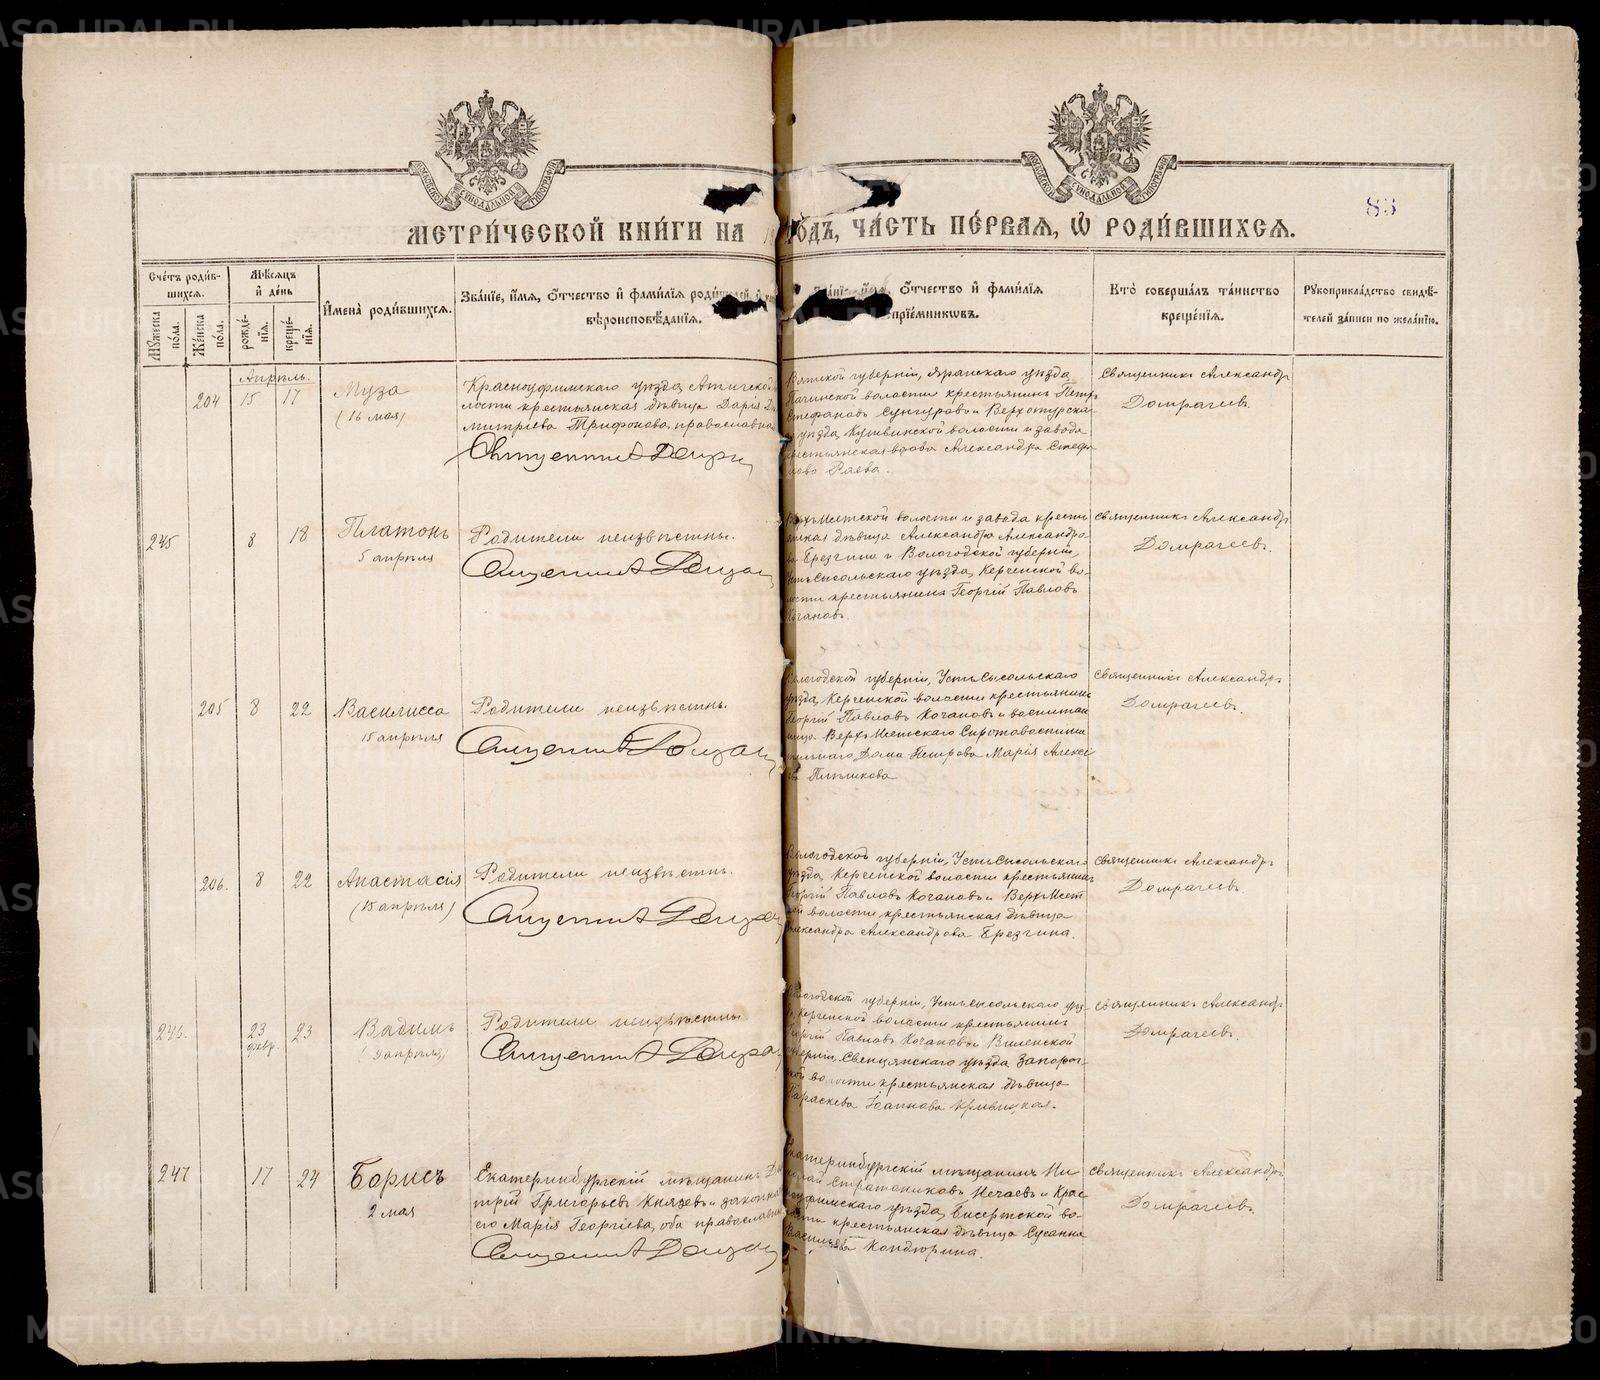 83
МЕТРИ́ЧЕСКОЙ КНИ́ГИ НА
ГО́ДЪ, ЧА́СТЬ ПЕ́РВАЯ, Ѡ РОДИ́ВШИХСЯ.
Сче́тъ роди́в-
шихся.
Мѣ́сяцъ
и де́нь
Мꙋ́жеска по́ла.
Же́нска по́ла.
рожде́-нїя.
креще́-нїя.
Имена̀ роди́вшихся.
Зва́нїе, и́мя, о́тчество и фами́лїя роди́телей, и
вѣроисповѣ́данїя.
о́тчество и фами́лїя
прїе́мникѡвъ.
Кто̀ соверша́лъ та́инство
креще́нїя.
Рꙋкоприкла́дство свидѣ́-
телей за́писи по жела́нїю.
Апрѣль.
204 15 17 Муза
(16 мая)
Красноуфимскаго уѣзда, Ачитской
лости крестьянская дѣвица Дарія Ди
митріева Трифонова, православная
Вятской губерніи, Яранскаго уѣзда
волости крестьянинъ Петръ
Стефановъ Сунгуровъ и Верхотурска
уѣзда, Кушвинской волости и завода
крестьянская вдова Александра Стефа
нова Раева.
Священникъ Александръ
Домрачеевъ.
245 8 18 Платонъ
5 апрѣля
Родители неизвѣстны.
Верхъ-Исетской волости и завода кресть
янская дѣвица Александра Александро
ва Брезгина и Вологодской губерніи,
Усть-Сысольскаго уѣзда, Керченской во-
лости крестьянинъ Георгій Павловъ
Качановъ.
Священникъ Александръ
Домрачеевъ.
205 8 22 Василисса
15 апрѣля
Родители неизвѣстны.
Вологодской губерніи, Усть-Сысольскаго
уѣзда, Керченской волости крестьянинъ
Георгій Павловъ Качановъ и воспитан
ница Верхъ-Исетскаго Сиротовоспита
тельнаго Дома Петрова Марія Алексѣ
ева
Священникъ Александръ
Домрачеевъ.
206. 8 22 Анастасія
(15 апрѣля)
Родители неизвѣстны.
Вологодской губерніи, Усть-Сысольскаго
уѣзда, Керченской волости крестьянинъ
Георгій Павловъ Качановъ и Верхъ-Исет
ской волости крестьянская дѣвица
Александра Александрова Брезгина.
Священникъ Александръ
Домрачеевъ.
246. 23 февр. 23 Вадимъ
(9 апрѣля)
Родители неизвѣстны
Вологодской губерніи, Усть-Сысольскаго уѣз-
Керченской волости крестьянинъ
Георгій Павловъ Качановъ и Виленской
губерніи, Свенцянскаго уѣзда
волости крестьянская дѣвица
Параскева Іоаннова Кривицкая.
Священникъ Александръ
Домрачеевъ.
247 17 24 Борисъ
2 мая
Екатеринбургскій мѣщанинъ Ди
трій Григорьевъ Князевъ и законная
его Марія Георгіева, оба православны
Екатеринбургскій мѣщанинъ Ни
колай Стратониковъ Нечаевъ и Крас
ноуфимскаго уѣзда, Бисертской во-
лости крестьянская дѣвица Сусанна
Васильева Кандюрина.
Священникъ Александръ
Домрачеевъ.
METRIKI.GASO-URAL.RU